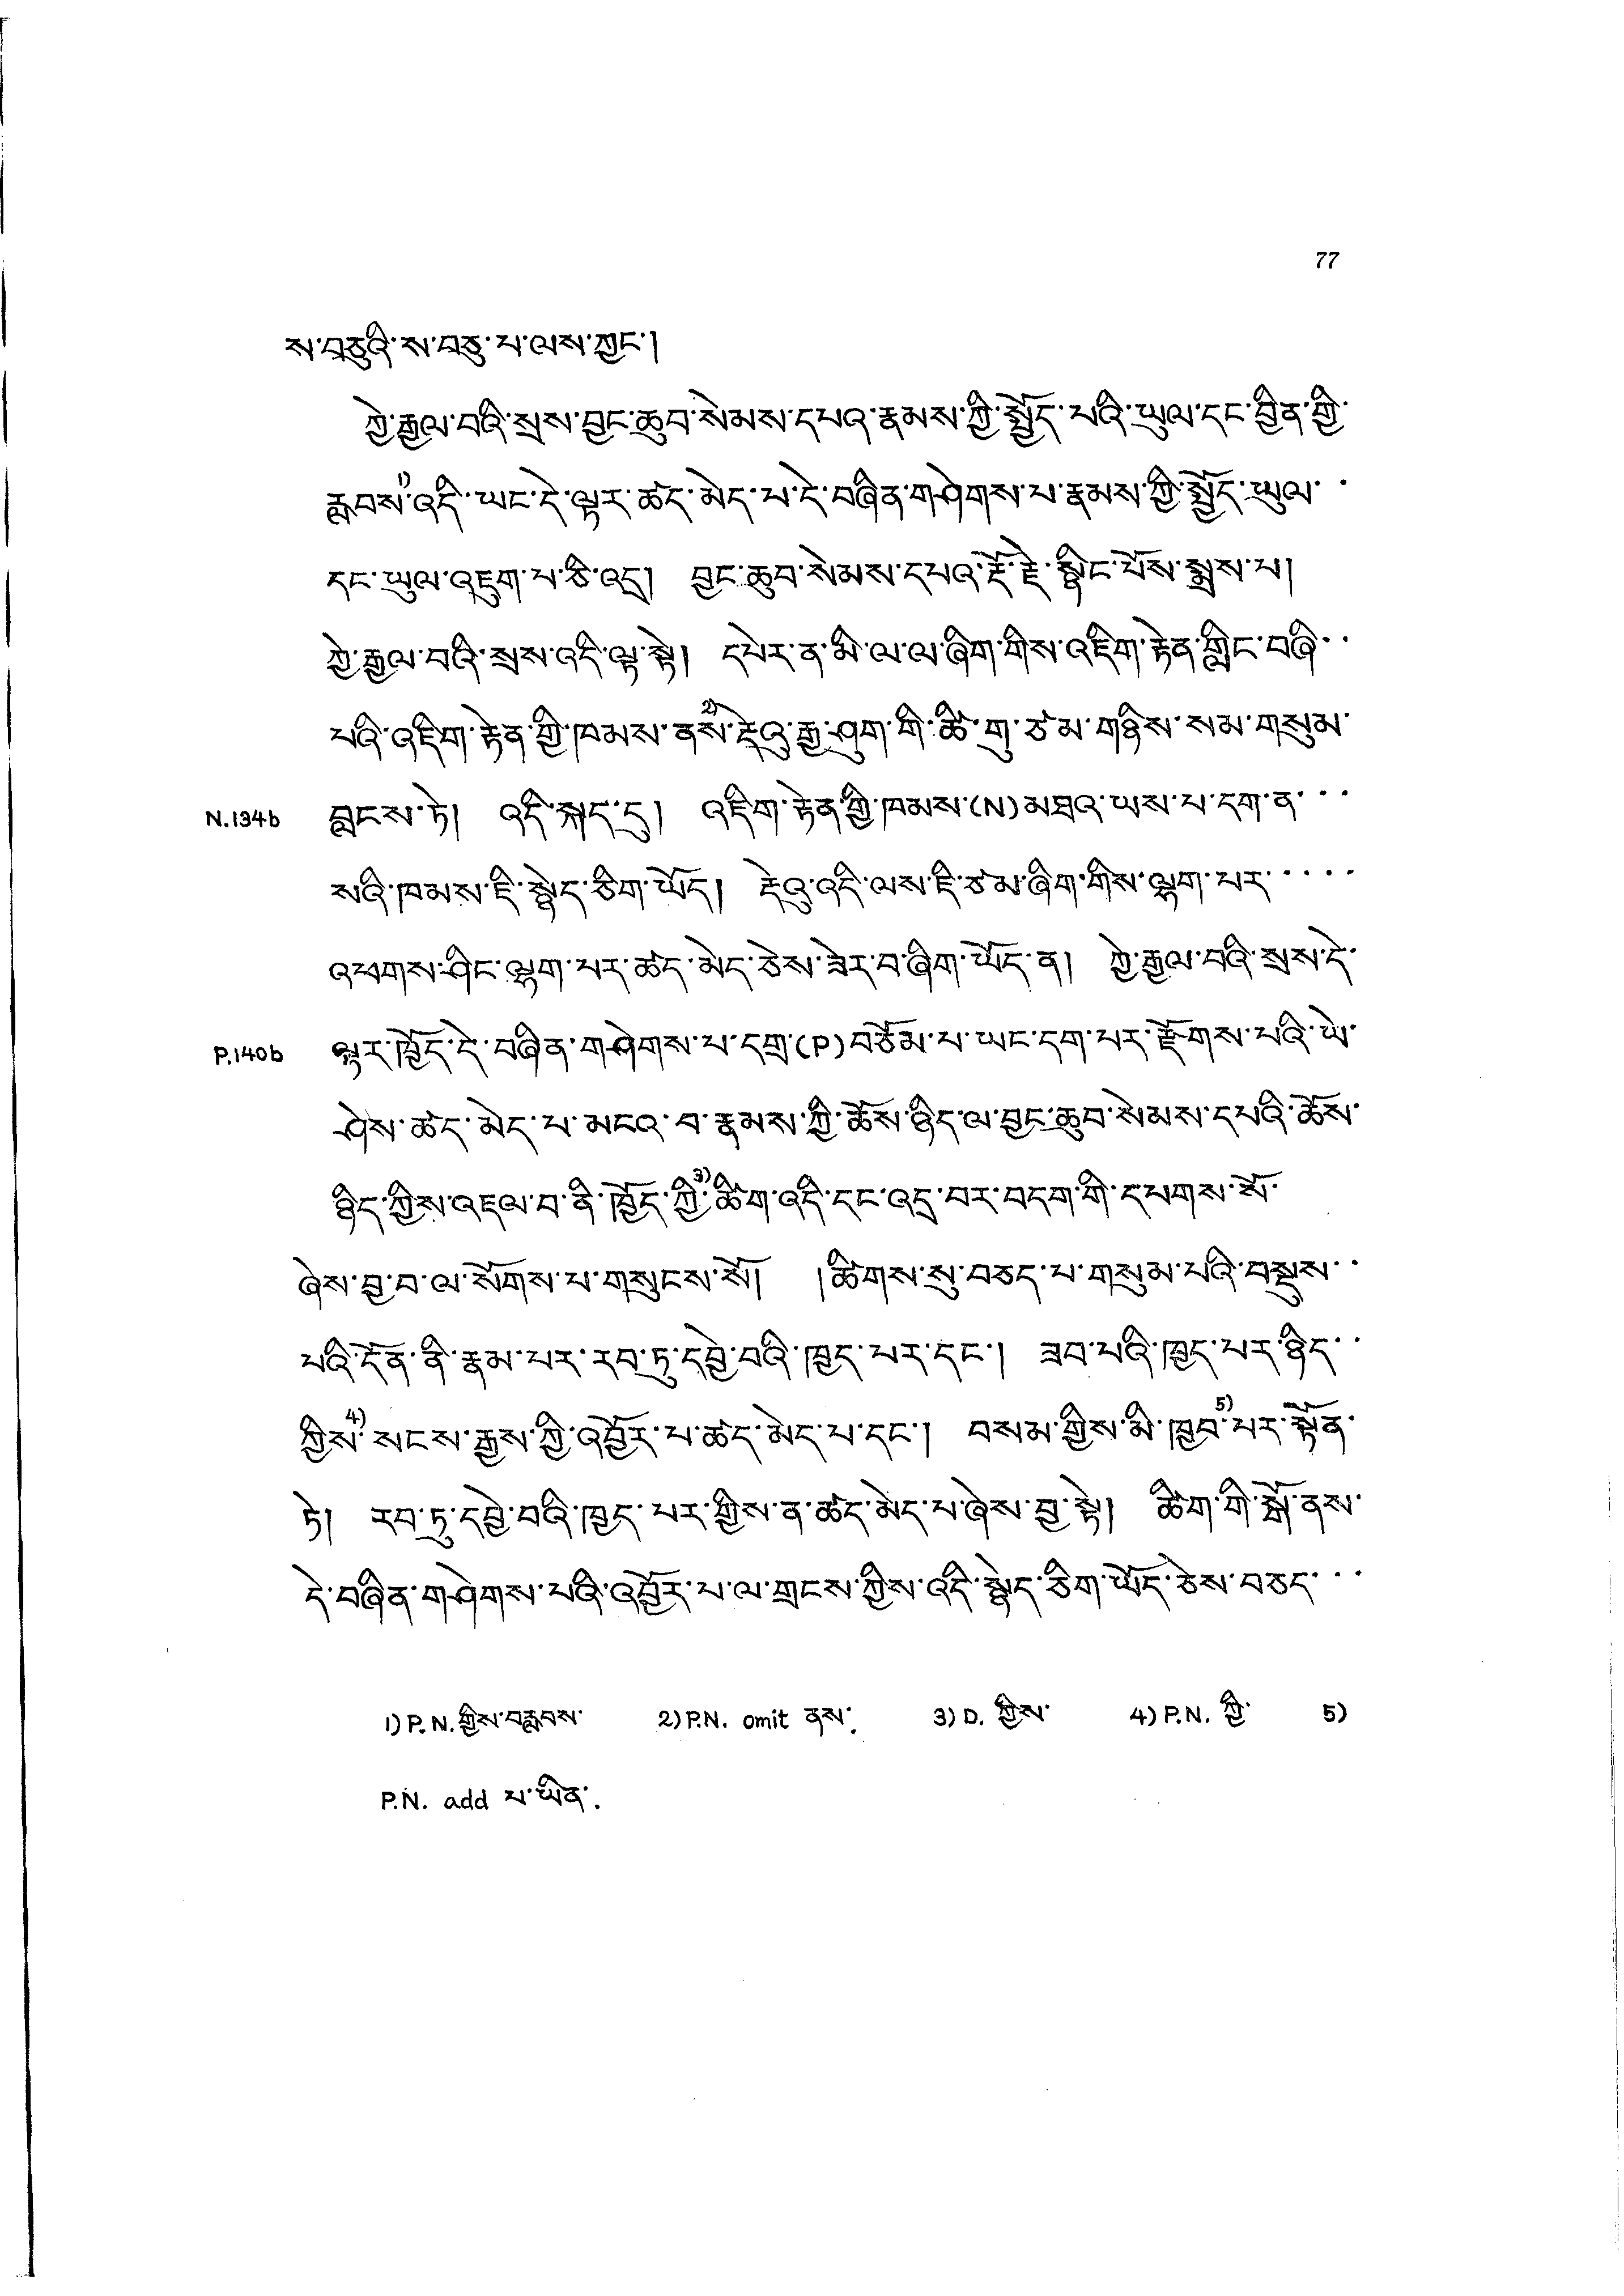 77
ས་བཅུའི་ས་བཅུ་པ་ལས་ཀྱང་།
ཀྱེ་རྒྱལ་བའི་སྲས་བྱང་ཆུབ་སེམས་དཔའ་རྣམས་ཀྱི་སྤྱོད་པའི་ཡུལ་དང་བྱིན་གྱི་
རླབས་1)འདི་ཡང་དེ་ལྟར་ཚད་མེད་པ་དེ་བཞིན་གཤེགས་པ་རྣམས་ཀྱི་སྤྱོད་ཡུལ་ ་
དང་ཡུལ་འཇུག་པ་ཅི་འདྲ། བྱང་ཆུབ་སེམས་དཔའ་རྡོ་རྗེ་སྙིང་པོས་སྨྲས་པ།
ཀྱེ་རྒྱལ་བའི་སྲས་འདི་ལྟ་སྟེ། དཔེར་ན་མི་ལ་ལ་ཞིག་གིས་འཇིག་རྟེན་གླིང་བཞི་ ་
པའི་འཇིག་རྟེན་གྱི་ཁམས་ནས་2)རྡེའུ་རྒྱ་ཤུག་གི་ཚི་གུ་ཙམ་གཉིས་སམ་གསུམ་
N.134b བླངས་ཏེ། འདི་སྐད་དུ། འཇིག་རྟེན་གྱི་ཁམས་(N)མཐའ་ཡས་པ་དག་ན་ ་ ་
སའི་ཁམས་ཇི་སྙེད་ཅིག་ཡོད། རྡེའུ་འདི་ལས་ཇི་ཙམ་ཞིག་གིས་ལྷག་པར་ ་ ་ ་ ་
འཕགས་ཤིང་ལྷག་པར་ཚད་མེད་ཅེས་ཟེར་བ་ཞིག་ཡོད་ན། ཀྱེ་རྒྱལ་བའི་སྲས་དེ་
P.140b ལྟར་ཁྱོད་དེ་བཞིན་གཤེགས་པ་དགྲ་(P)བཅོམ་པ་ཡང་དག་པར་རྫོགས་པའི་ཡེ་
ཤེས་ཚད་མེད་པ་མངའ་བ་རྣམས་ཀྱི་ཆོས་ཉིད་ལ་བྱང་ཆུབ་སེམས་དཔའི་ཆོས་
ཉིད་ཀྱིས་འཇལ་བ་ནི་ཁྱོད་ཀྱི་3)ཚིག་འདི་དང་འདྲ་བར་བདག་གི་དཔགས་སོ་
ཞེས་བྱ་བ་ལ་སོགས་པ་གསུངས་སོ། །ཚིགས་སུ་བཅད་པ་གསུམ་པའི་བསྡུས་ ་
པའི་དོན་ནི་རྣམ་པར་རབ་ཏུ་དབྱེ་བའི་ཁྱད་པར་དང་། ཟབ་པའི་ཁྱད་པར་ཉིད་ ་
ཀྱིས་4)སངས་རྒྱས་ཀྱི་འབྱོར་པ་ཚད་མེད་པ་དང་། བསམ་གྱིས་མི་ཁྱབ་5)པར་སྟོན་
ཏེ། རབ་ཏུ་དབྱེ་བའི་ཁྱད་པར་གྱིས་ན་ཚད་མེད་པ་ཞེས་བྱ་སྟེ། ཚིག་གི་སྒོ་ནས་
དེ་བཞིན་གཤེགས་པའི་འབྱོར་པ་ལ་གྲངས་ཀྱིས་འདི་སྙེད་ཅིག་ཡོད་ཅེས་བཅད་ ་ ་
1) P.N.གྱིས་བརླབས་ 2) P.N. omit ནས་. 3) D. ཀྱིས་ 4) P.N. ཀྱི་ 5)
P.N. add པ་ཡིན་.